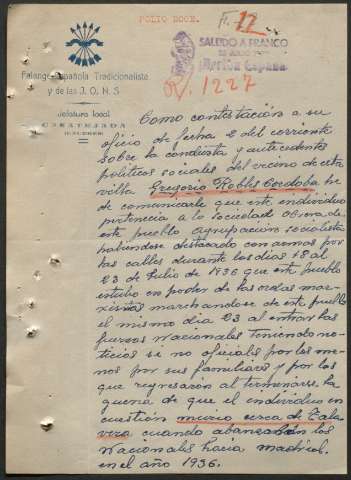 FOLIO DOCE.
F. 12
SALUDO A FRANCO
¡Arriba España!
R. 1227
Falange Española Tradicionalista
y de las J. O. N. S
Jefatura local
CASATEJADA
(CACERES)
Como contestación a su
oficio de fecha 2 del corriente
sobre la conducta y antecedentes
politicos sociales del vecino de esta
villa Gregorio Robles Cordoba he
de comunicarle que este individuo
pertenecia a la sociedad Obrera de
este pueblo agrupación socialista
habiendose destacado con armas por
las calles durante los dias 18 al
23 de Julio de 1936 que este pueblo
estubo en poder de las ordas mar-
xistas marchandose de este pueblo
el mismo dia 23 al entrar las
fuersas Nacionales teniendo no-
ticias se no oficiales por los me-
nos por sus familiares y por los
que regresaron al terminarse la
guerra de que el individuo en
cuestión murio cerca de Tala
vera cuando abanzaban los
Nacionales hacia Madrid.
en el año 1936.